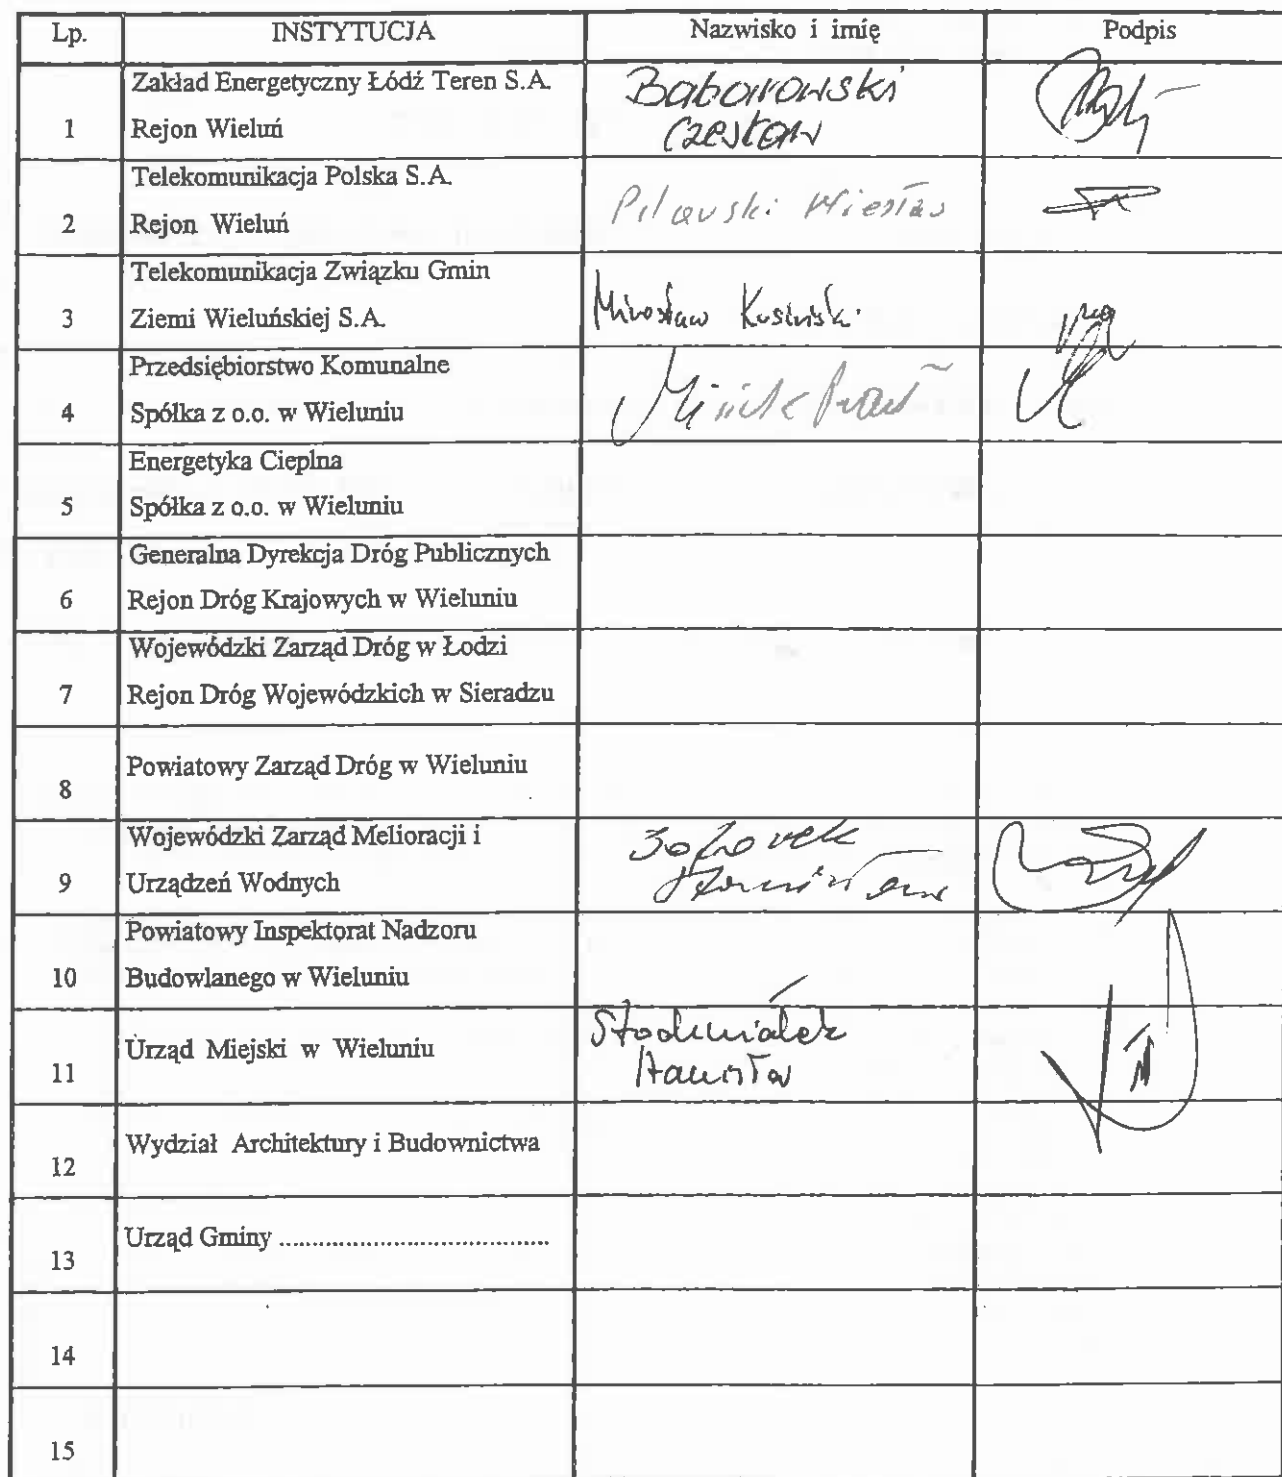 Lp. INSTYTUCJA Nazwisko i imię Podpis
Zakład Energetyczny Łódź Teren S.A. Baborowski
1 Rejon Wieluń Czesław
Telekomunikacja Polska S.A.
2 Rejon Wieluń Pilawski Wiesław
Telekomunikacja Związku Gmin
3 Ziemi Wieluńskiej S.A. Mirosław Kusiński
Przedsiębiorstwo Komunalne
4 Spółka z o.o. w Wieluniu
Energetyka Cieplna
5 Spółka z o.o. w Wieluniu
Generalna Dyrekcja Dróg Publicznych
6 Rejon Dróg Krajowych w Wieluniu
Wojewódzki Zarząd Dróg w Łodzi
7 Rejon Dróg Wojewódzkich w Sieradzu
8 Powiatowy Zarząd Dróg w Wieluniu
Wojewódzki Zarząd Melioracji i
9 Urządzeń Wodnych
Powiatowy Inspektorat Nadzoru
10 Budowlanego w Wieluniu
11 Urząd Miejski w Wieluniu
12 Wydział Architektury i Budownictwa
13 Urząd Gminy ........................................
14
15